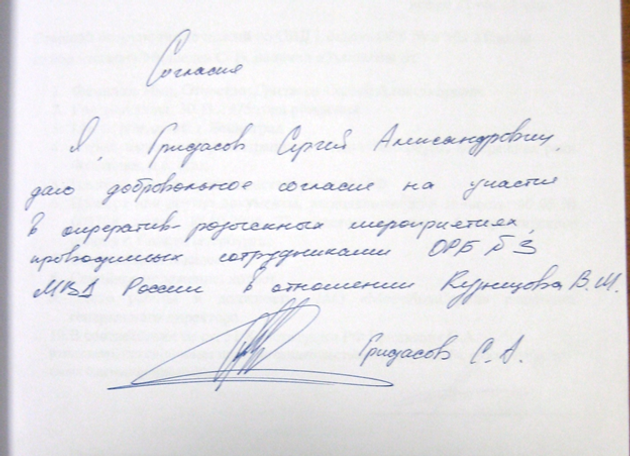 Согласие
Я, Гридасов Сергей Александрович,
даю добровольное согласие на участие
в оператив-розыскных мероприятиях,
проводимых сотрудниками ОРБ №3
МВД России в отношении Кузнецова В.М.
Гридасов С.А.